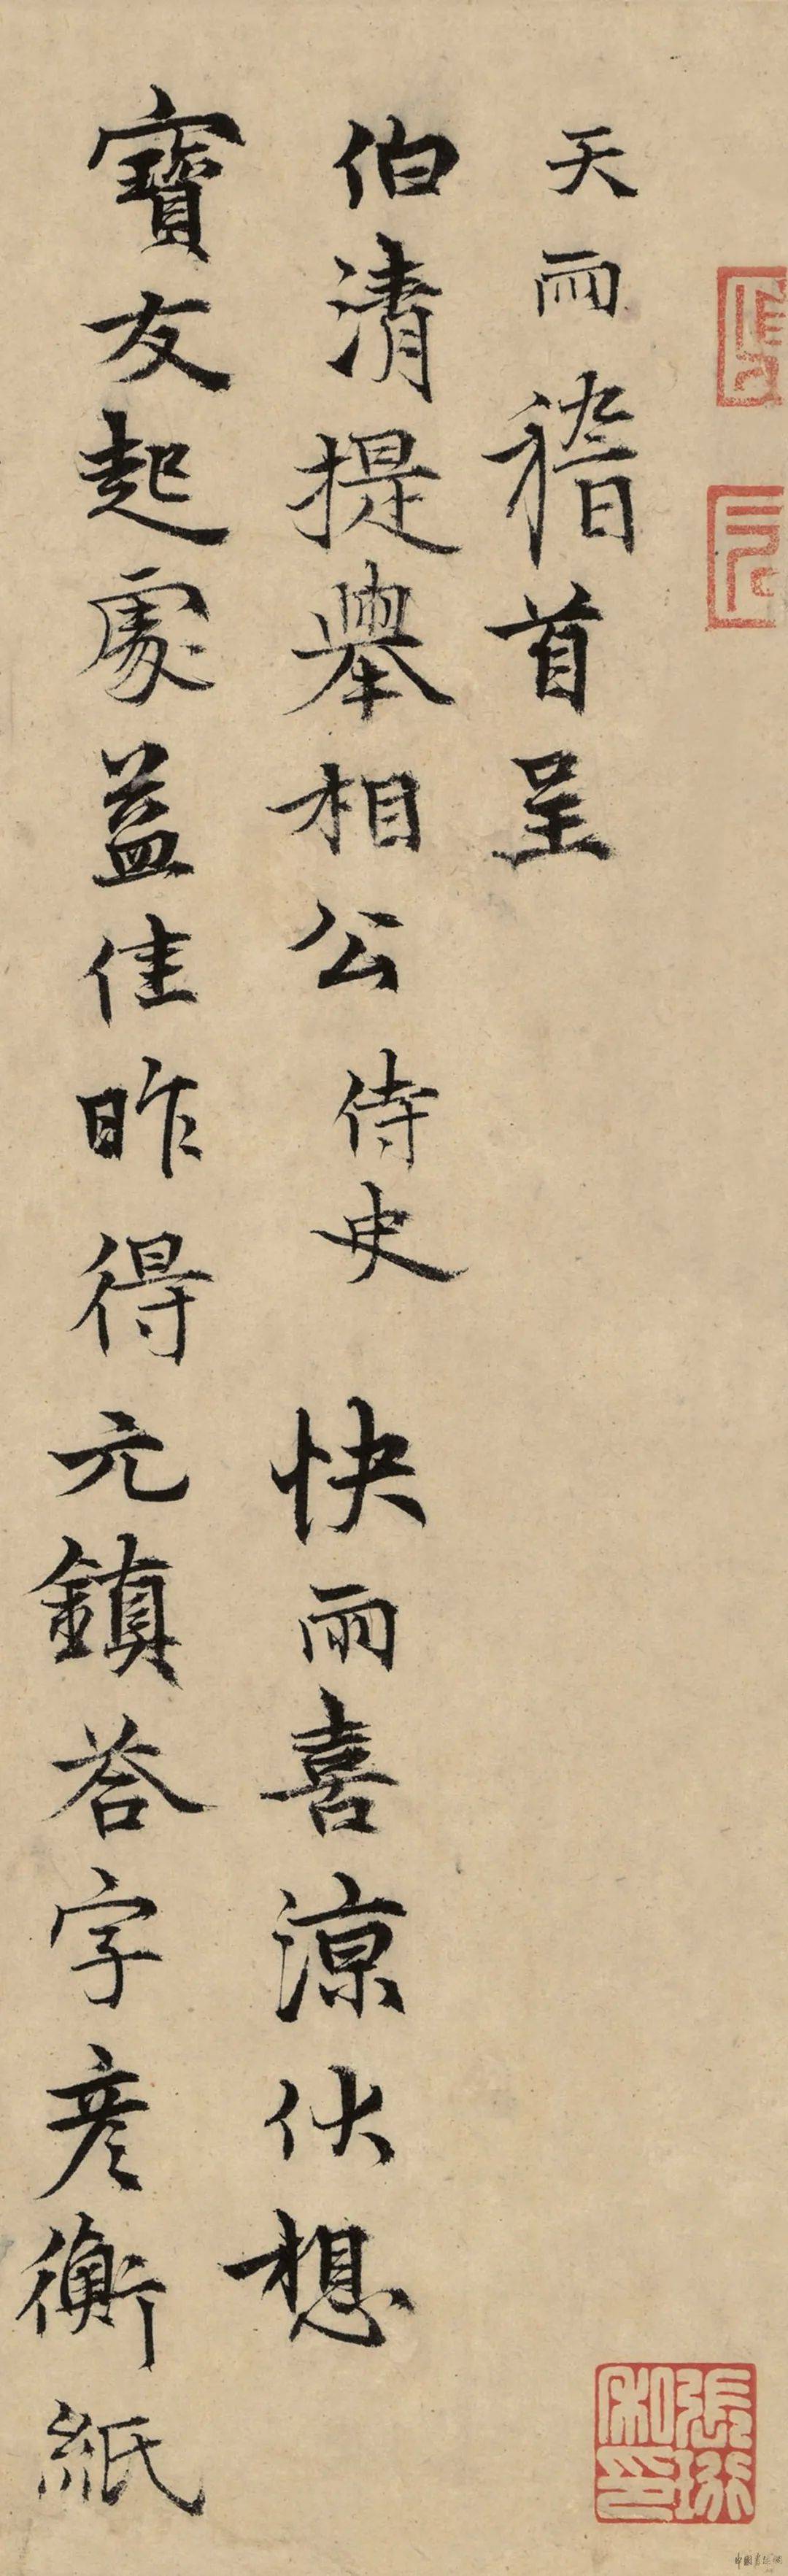 天雨稽首呈
伯清提舉相公侍史 快雨喜涼伏想
寶友起處益佳昨得元鎮荅字彥衡紙
張珩私印